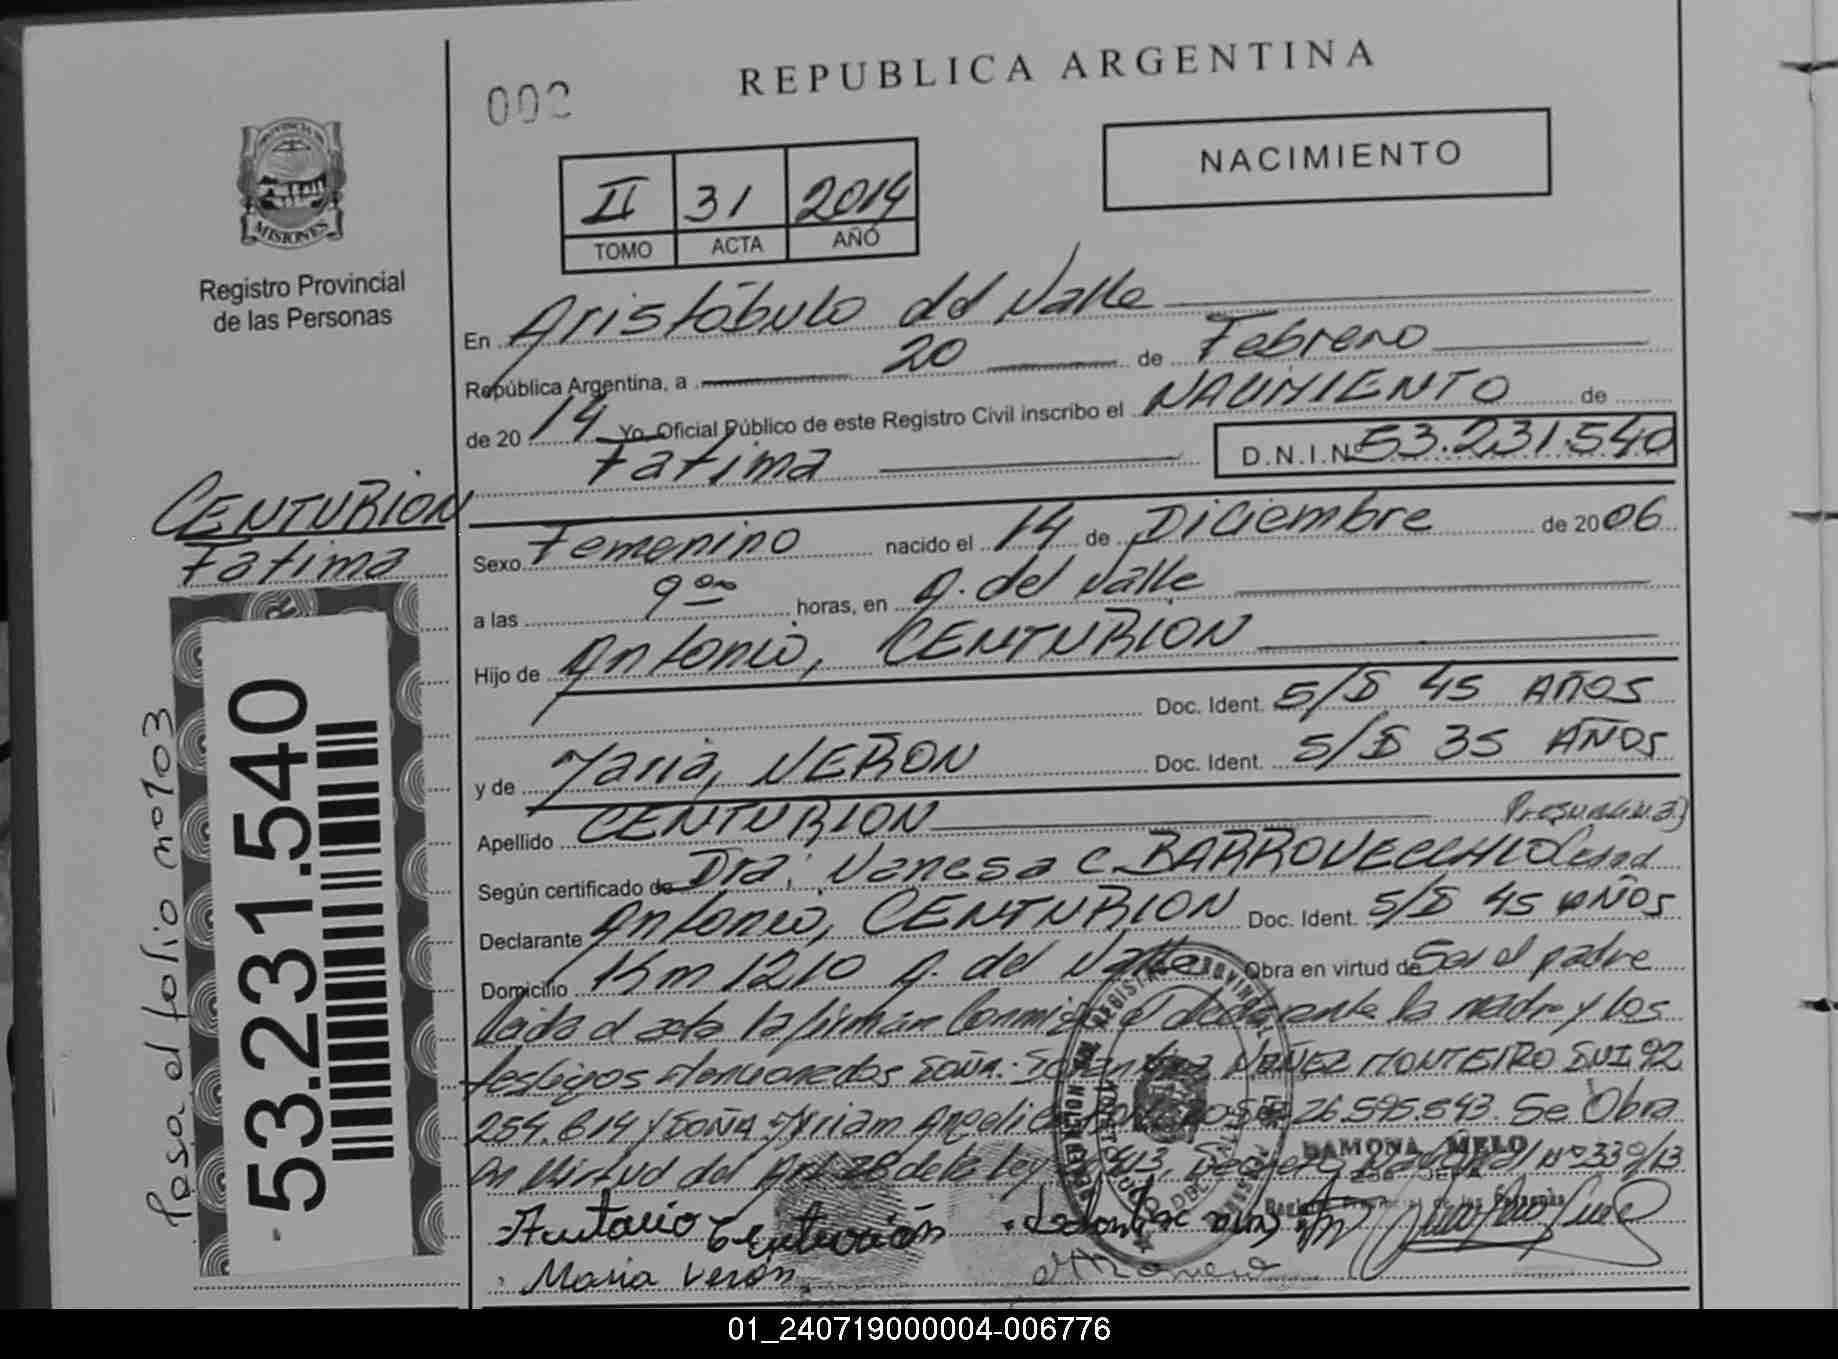 002
REPUBLICA ARGENTINA
NACIMIENTO
PROVINCIA DE
MISIONES
Registro Provincial
de las Personas
II 31 2014
TOMO ACTA AÑO
En Aristóbulo del Valle
República Argentina, a 20 de Febrero
de 20 14 Yo, Oficial Público de este Registro Civil inscribo el NACIMIENTO de
Fatima D.N.I.Nº 53.231.540
CENTURION
Fatima
Sexo Femenino nacido el 14 de Diciembre de 2006
a las 9 00 horas, en A. del Valle
Hijo de Antonio, CENTURION
Doc. Ident. S/D 45 AÑOS
y de Maria, VERON Doc. Ident. S/D 35 AÑOS
Apellido CENTURION
Según certificado de Dra. Vanesa C. BARROVECCHIO
Declarante Antonio, CENTURION Doc. Ident. S/D 45 AÑOS
Domicilio Km 1210 A. del Valle Obra en virtud de Ser el padre
Leida el acta la firman Conmigo el declarante la madre y los
testigos Mencionados DOÑA: NUÑEZ MONTEIRO DNI 92
254.614 y DOÑA Miriam 26.595.543. Se Obra
en Virtud del Art. 28 de la Ley 413, Nº 339/13
RAMONA MELO
Antonio Centurión
Maria Verón
Pasa al folio nº 103
53.231.540
01_240719000004-006776